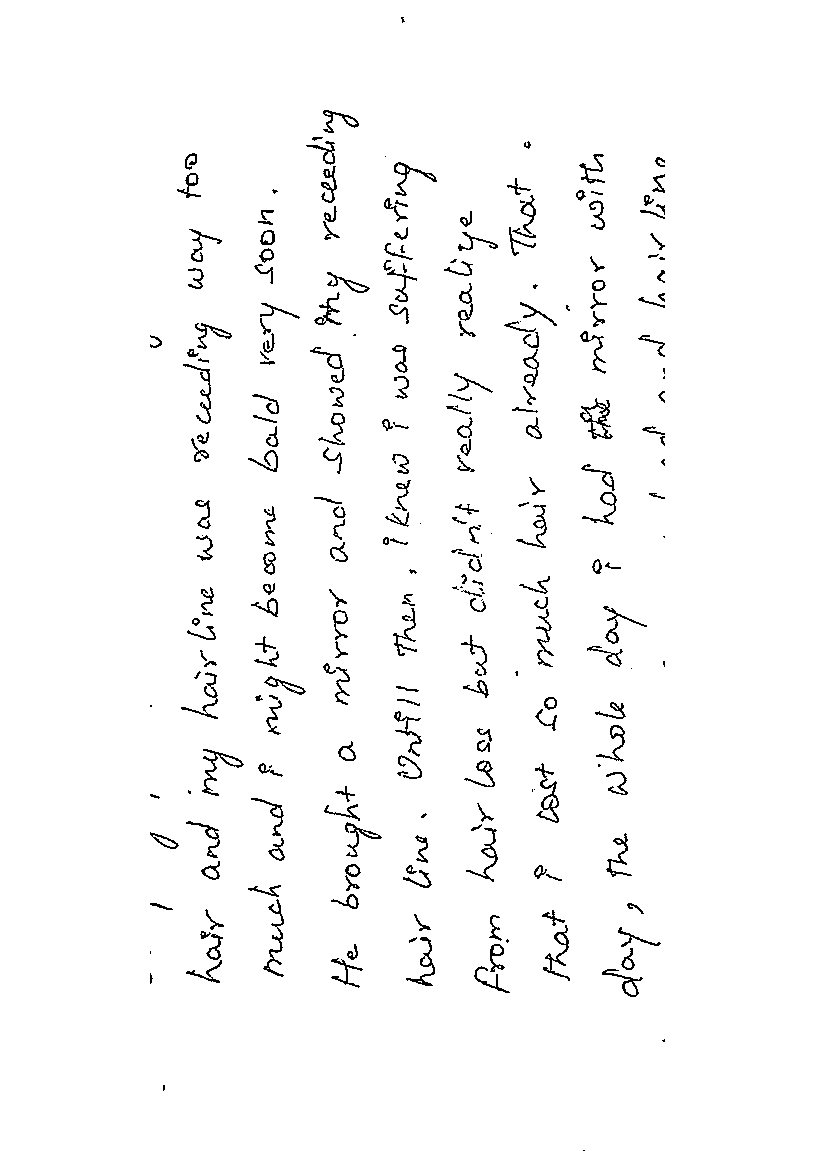 hair and my hairline was receeding way too
much and i might become bald very soon.
He brought a mirror and showed my receeding
hair line. Untill then, i knew i was suffering
from hair loss but didn't really realize
that i lost so much hair already. That.
day, the whole day i had the mirror with
hair line